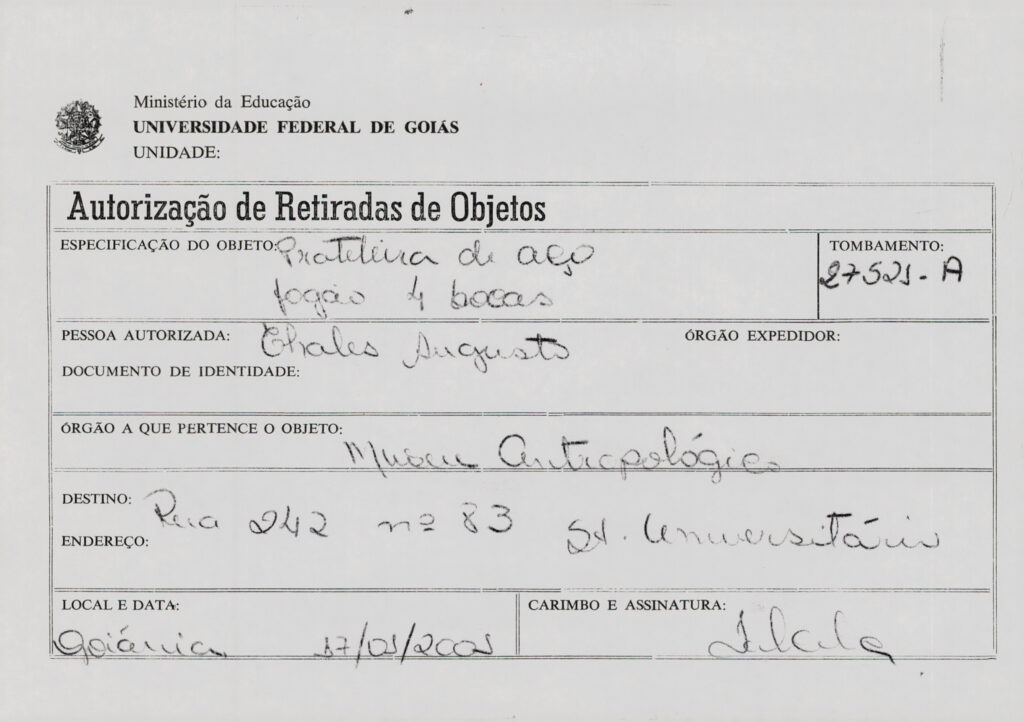 Ministério da Educação
UNIVERSIDADE FEDERAL DE GOIÁS
UNIDADE:
Autorização de Retiradas de Objetos
ESPECIFICAÇÃO DO OBJETO: Prateleira de aço
fogão 4 bocas
TOMBAMENTO:
27521-A
PESSOA AUTORIZADA: Thales Augusto
ÓRGÃO EXPEDIDOR:
DOCUMENTO DE IDENTIDADE:
ÓRGÃO A QUE PERTENCE O OBJETO:
Museu Antropológico
DESTINO: Rua 242 nº 83
ENDEREÇO: St. Universitário
LOCAL E DATA:
Goiânia 17/01/2001
CARIMBO E ASSINATURA: